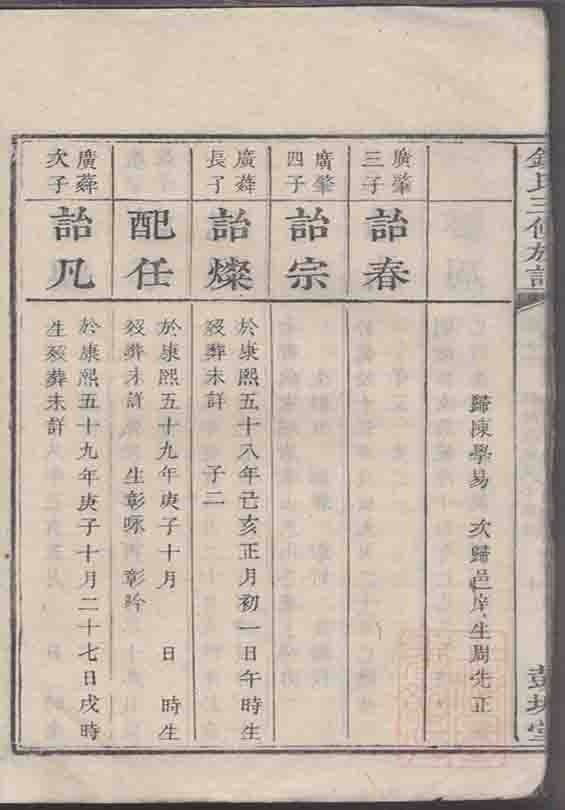 歸陳學易 次歸邑庠生周先正
廣肇
三子
詒春
廣肇
四子
詒宗
廣蕣
長了
詒燦
於康熙五十八年己亥正月初一日午時生
歿葬未詳 子二
配任
於康熙五十九年庚子十月 日 時生
歿葬未詳 生彰啄 彰吟
廣蕣
次子
詒凡
於康熙五十九年庚子十月二十七日戌時
生歿葬未詳